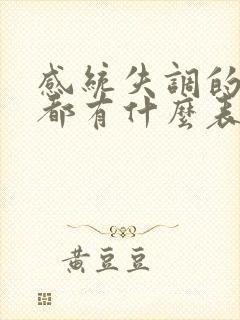 感統失調的
都有什麼表
黃豆豆